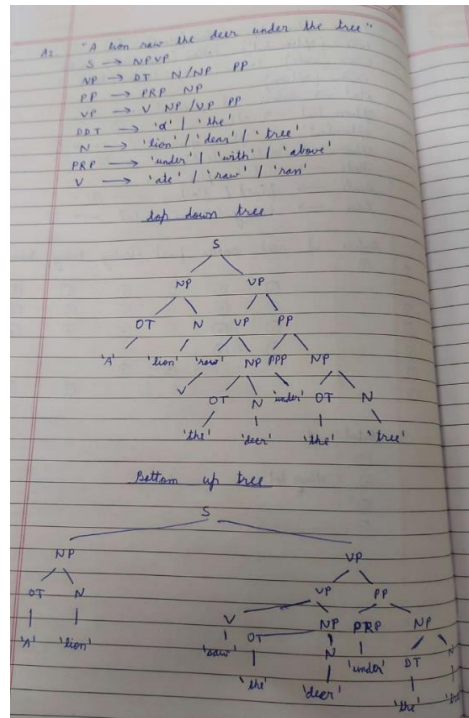 A2. "A lion saw the deer under the tree"
S → NP VP
NP → DT N/NP PP
PP → PRP NP
VP → V NP/VP PP
DDT → 'a' | 'the'
N → 'lion' / 'dear' / 'tree'
PRP → 'under' | 'with' | 'above'
V → 'ate' | 'saw' | 'ran'
top down tree
S
NP VP
OT N VP PP
'A' 'lion' 'saw' NP PPP NP
V OT N 'under' OT N
'the' 'deer' 'the' 'tree'
Bottom up tree
S
NP VP
OT N VP PP
'A' 'lion' V NP PRP NP
'saw' OT N 'under' DT N
'the' 'deer' 'the'